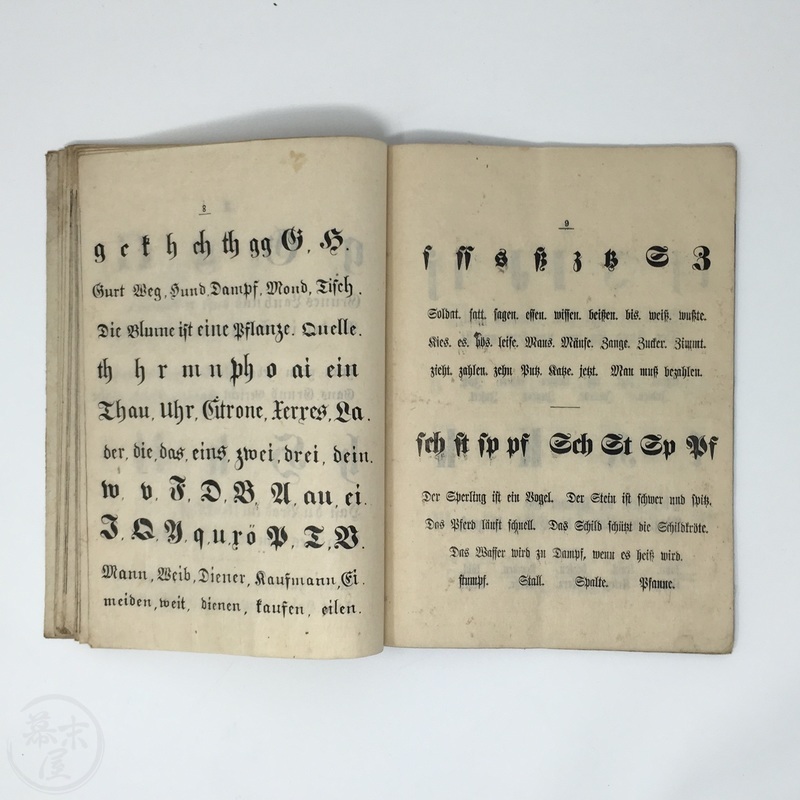 8
g c k h ch th gg G, H.
Gurt Weg, Hund, Dampf, Mond, Tisch.
Die Blume ist eine Pflanze. Quelle.
th h r m n ph o ai ein
Thau, Uhr, Citrone, Xerxes, La-
der, die, das, eins, zwei, drei, dein.
w, v, F, D, B, A, au, ei.
I, Q, Y, q u, x ö P, T, V.
Mann, Weib, Diener, Kaufmann, Ei.
meiden, weit, dienen, kaufen, eilen.
9
ſ ſſ s ß z tz S Z
Soldat. ſatt. ſagen. eſſen. wiſſen. beißen. bis. weiß. wußte.
Kies. es. leiſe. Maus. Mäuſe. Zange. Zucker. Zimmt.
zieht. zahlen. zehn Putz. Katze. jetzt. Man muß bezahlen.
ſch ſt ſp pf Sch St Sp Pf
Der Sperling iſt ein Vogel. Der Stein iſt ſchwer und ſpitz.
Das Pferd läuft ſchnell. Das Schild ſchützt die Schildkröte.
Das Waſſer wird zu Dampf, wenn es heiß wird.
ſtumpf. Stall. Spalte. Pfanne.
幕末屋